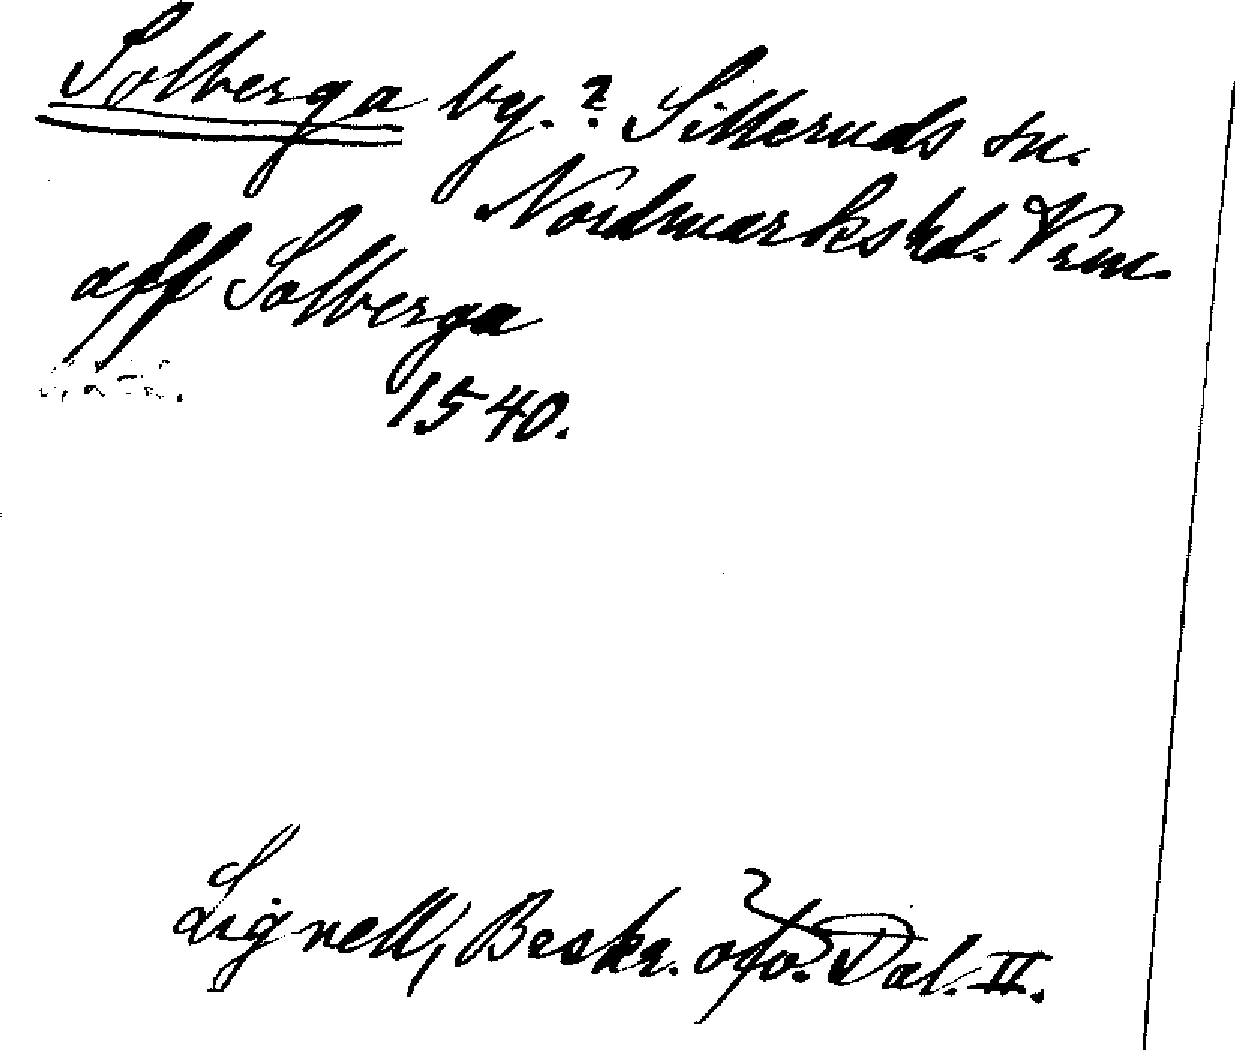 Solberga by.? Silleruds sn.
Nordmarks hd. Vrm.
aff Solberga
1540.
Lignell, Beskr. öfv. Dal. II.